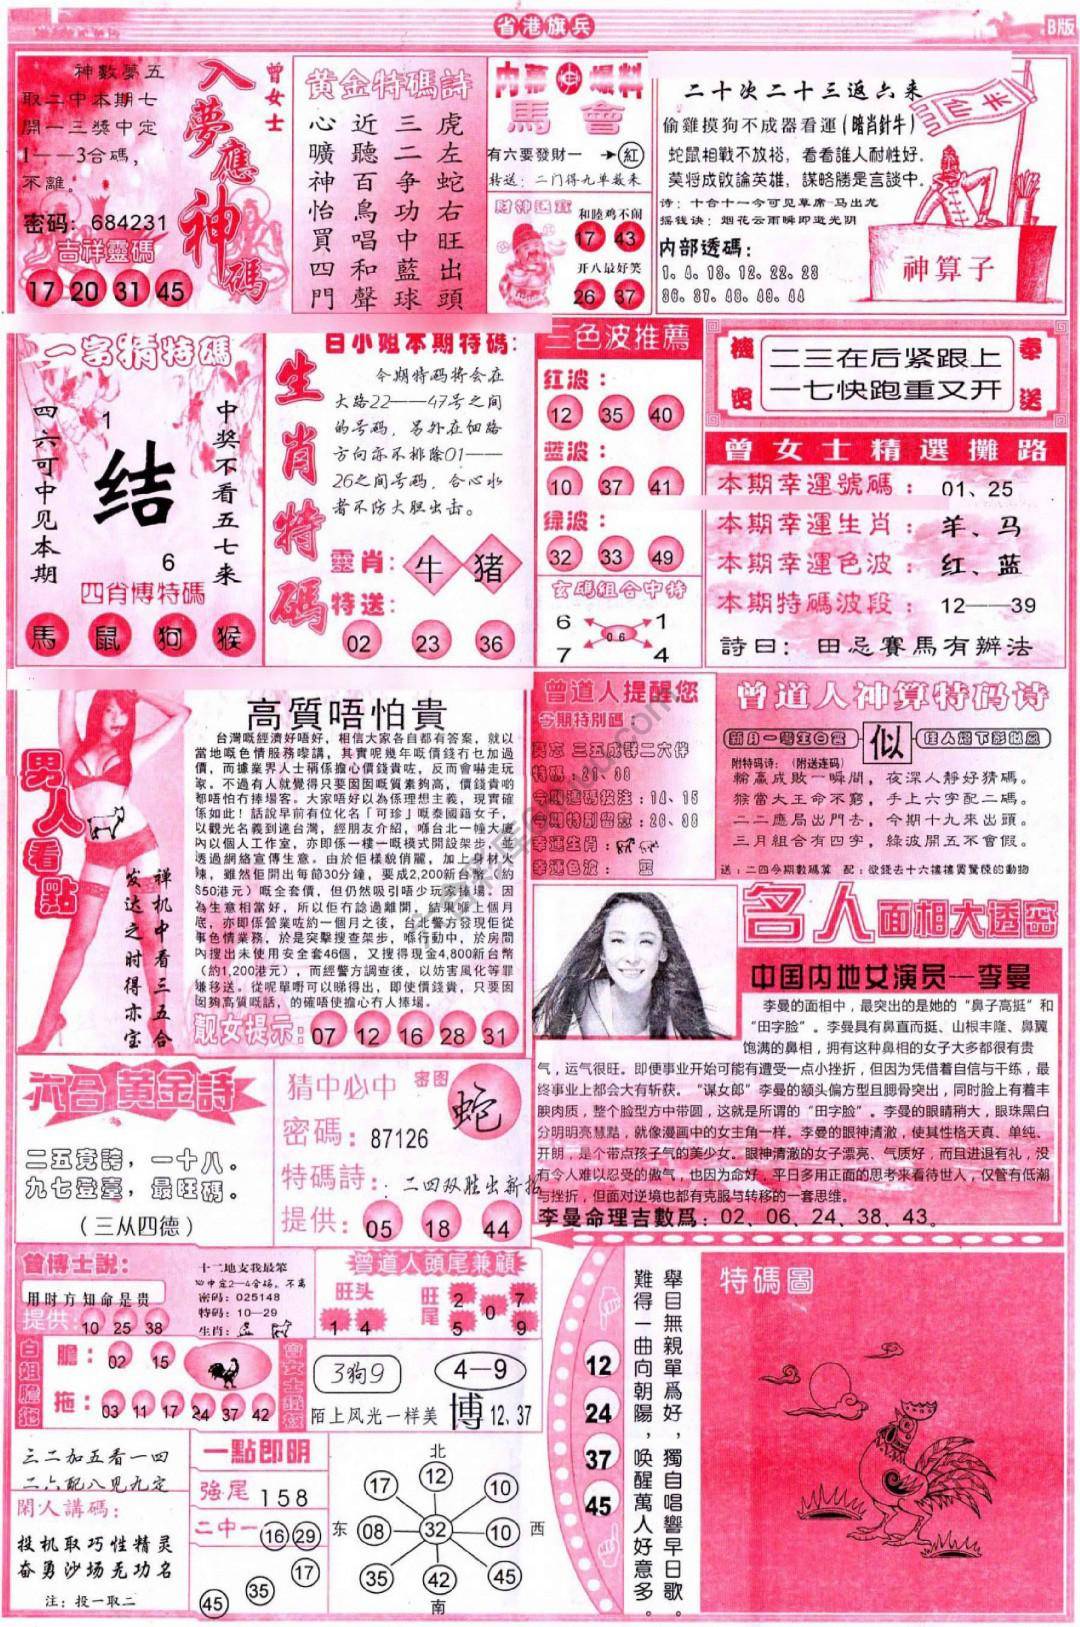 省港旗兵
B版
神數夢五
取二中本期七
開一三獎中定
1——3合碼，
不離。
密码：684231
吉祥靈碼
17 20 31 45
入夢應神碼
曾女士
黄金特碼詩
虎左蛇右旺出頭
三二争功中藍球
近聽百鳥唱和聲
心曠神怡買四門
内幕爆料
馬會
有六要發財一→紅
转送：二门得九单数来
和陸鸡不闹
17 43
开八最好笑
26 37
二十次二十三返六来
偷雞摸狗不成器看運(瞎肖針牛)
蛇鼠相戰不放裕，看看誰人耐性好.
莫将成敗論英雄，謀略勝是言談中.
诗：十合十一今可见草席-马出龙
摇钱诀：烟花云雨瞬即逝光阴
内部透碼：
神算子
一字猜特碼
四六可中见本期
1
结
6
中奖不看五七来
四肖博特碼
馬 鼠 狗 猴
生肖特碼
白小姐本期特碼：
今期特码将会在
大路22——47号之间
的号码，另外在细路
方向亦不排除01——
26之间号码，合心水
者不防大胆出击。
靈肖：牛 猪
特送：
02 23 36
三色波推薦
红波：
12 35 40
蓝波：
10 37 41
绿波：
32 33 49
玄碼組合中特
6 1
06
7 4
機密
二三在后紧跟上
一七快跑重又开
奉送
曾女士精選攤路
本期幸運號碼：01、25
本期幸運生肖：羊、马
本期幸運色波：红、蓝
本期特碼波段：12——39
詩曰：田忌賽馬有辦法
男人看點
禅机中看三五合
发达之时得亦宝
高質唔怕貴
台灣嘅經濟好唔好，相信大家各自都有答案，就以
當地嘅色情服務嚟講，其實呢幾年嘅價錢冇乜加過
價，而據業界人士稱係擔心價錢貴咗，反而會嚇走玩
家。不過有人就覺得只要因囡嘅質素夠高，價錢貴啲
都唔怕冇捧場客。大家唔好以為係理想主義，現實確
係如此！話說早前有位化名「可珍」嘅泰國籍女子，
以觀光名義到達台灣，經朋友介紹，喺台北一幢大廈
內以個人工作室，亦即係一樓一嘅模式開設架步，並
透過網絡宣傳生意。由於佢樣貌俏麗，加上身材火
辣，雖然佢開出每節30分鐘，要成2,200新台幣（約
550港元）嘅全套價，但仍然吸引唔少玩家捧場。因
為生意相當好，所以佢冇諗過離開，結果喺上個月
底，亦即係營業咗約一個月之後，台北警方發現佢從
事色情業務，於是突擊搜查架步，喺行動中，於房間
內搜出未使用安全套46個，又搜得現金4,800新台幣
（約1,200港元），而經警方調查後，以妨害風化等罪
嫌移送。從呢單嘢可以睇得出，即使價錢貴，只要因
囡夠高質嘅話，的確唔使擔心冇人捧場。
靓女提示：07 12 16 28 31
曾道人提醒您
今期特別碼：
莫忘 三五成群二六伴
今期連碼投注：14、15
幸運生肖：
幸運色波： 藍
曾道人神算特码诗
似
附特码诗：(附送连码)
輸贏成敗一瞬間，夜深人靜好猜碼。
猴當大王命不窮，手上六字配二碼。
二二應局出門去，今期十九来出頭。
三月組合有四字，綠波開五不會假。
送：二四今期數碼算 配：欲錢去十六樓樓買驚慌的動物
名人面相大透密
中国内地女演员—李曼
李曼的面相中，最突出的是她的“鼻子高挺”和
“田字脸”。李曼具有鼻直而挺、山根丰隆、鼻翼
饱满的鼻相，拥有这种鼻相的女子大多都很有贵
气，运气很旺。即便事业开始可能有遭受一点小挫折，但因为凭借着自信与干练，最
终事业上都会大有斩获。“谋女郎”李曼的额头偏方型且腮骨突出，同时脸上有着丰
腴肉质，整个脸型方中带圆，这就是所谓的“田字脸”。李曼的眼睛稍大，眼珠黑白
分明明亮慧黠，就像漫画中的女主角一样。李曼的眼神清澈，使其性格天真、单纯、
开朗，是个带点孩子气的美少女。眼神清澈的女子漂亮、气质好，而且进退有礼，没
有令人难以忍受的傲气，也因为命好，平日多用正面的思考来看待世人，仅管有低潮
与挫折，但面对逆境也都有克服与转移的一套思维。
李曼命理吉數爲：02、06、24、38、43。
六合黄金詩
二五竞誇，一十八。
九七登臺，最旺碼。
（三从四德）
猜中必中 密图 蛇
密碼：87126
特碼詩：二四双胜出新招
提供：05 18 44
曾博士說：
用时方知命是贵
提供：10 25 38
十二地支我最笨
心中定2—4合码，不离
密码：025148
特码：10—29
生肖：
曾道人頭尾兼顧
旺头
1 4
旺尾
2 0 7
5 9
白姐膽拖
膽：02 15
拖：03 11 17 24 37 42
3狗9
4—9
陌上风光一样美 博 12、37
三二加五看一四
二六配八见九定
閑人講碼：
投机取巧性精灵
奋勇沙场无功名
注：投一取二
一點即明
強尾 158
二中一 16 29
17
35
45
北
17 12 10
东 08 32 10 西
35 42 45
南
12
24
37
45
舉目無親單爲好，獨自唱響早日歌。
難得一曲向朝陽，唤醒萬人好意多。
特碼圖